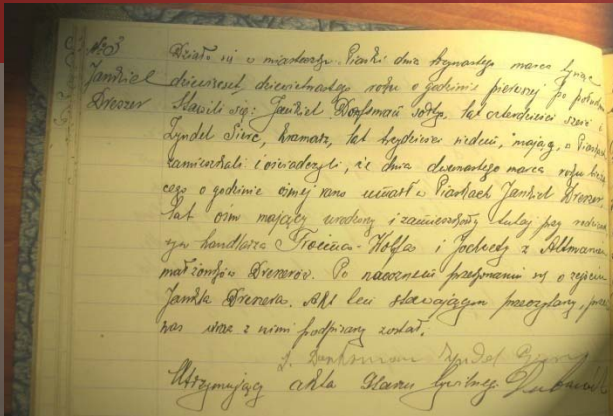 Jankiel
Drezner
Działo się w miasteczku Piaski dnia trzynastego marca tysiąc
dziewięset dziewiętnastego roku o godzinie pierwszej po południu
Stawili się: Jankiel lat czterdzieści sześć i
Zyndel kramarz, lat trzydzieści siedem, mający, w Piaskach
zamieszkali i oświadczyli, że dnia dwunastego marca roku bieżą-
cego o godzinie ósmej rano umarł w Piaskach Jankiel Drezner
lat ośm mający urodzony i zamieszkały tutaj przy rodzicach
syn handlarza Wolfa i z Altmanów
małżonków Dreznerów. Po naocznem przekonaniu się o zejściu
Jankla Dreznera. Akt ten stawającym przeczytany, przez
nas wraz z nimi podpisany został.
Utrzymujący akta Stanu Cywilnego